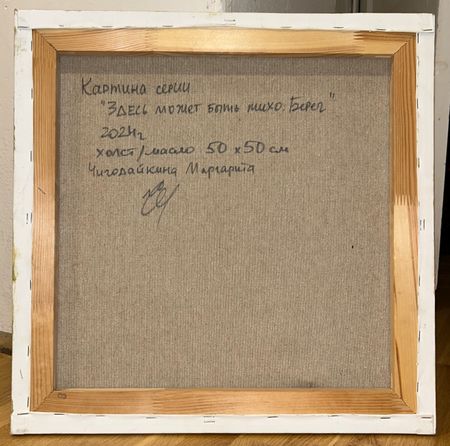 Картина серии
"Здесь может быть тихо. Берег"
2024г
холст/масло 50 х 50 см
Чигодайкина Маргарита